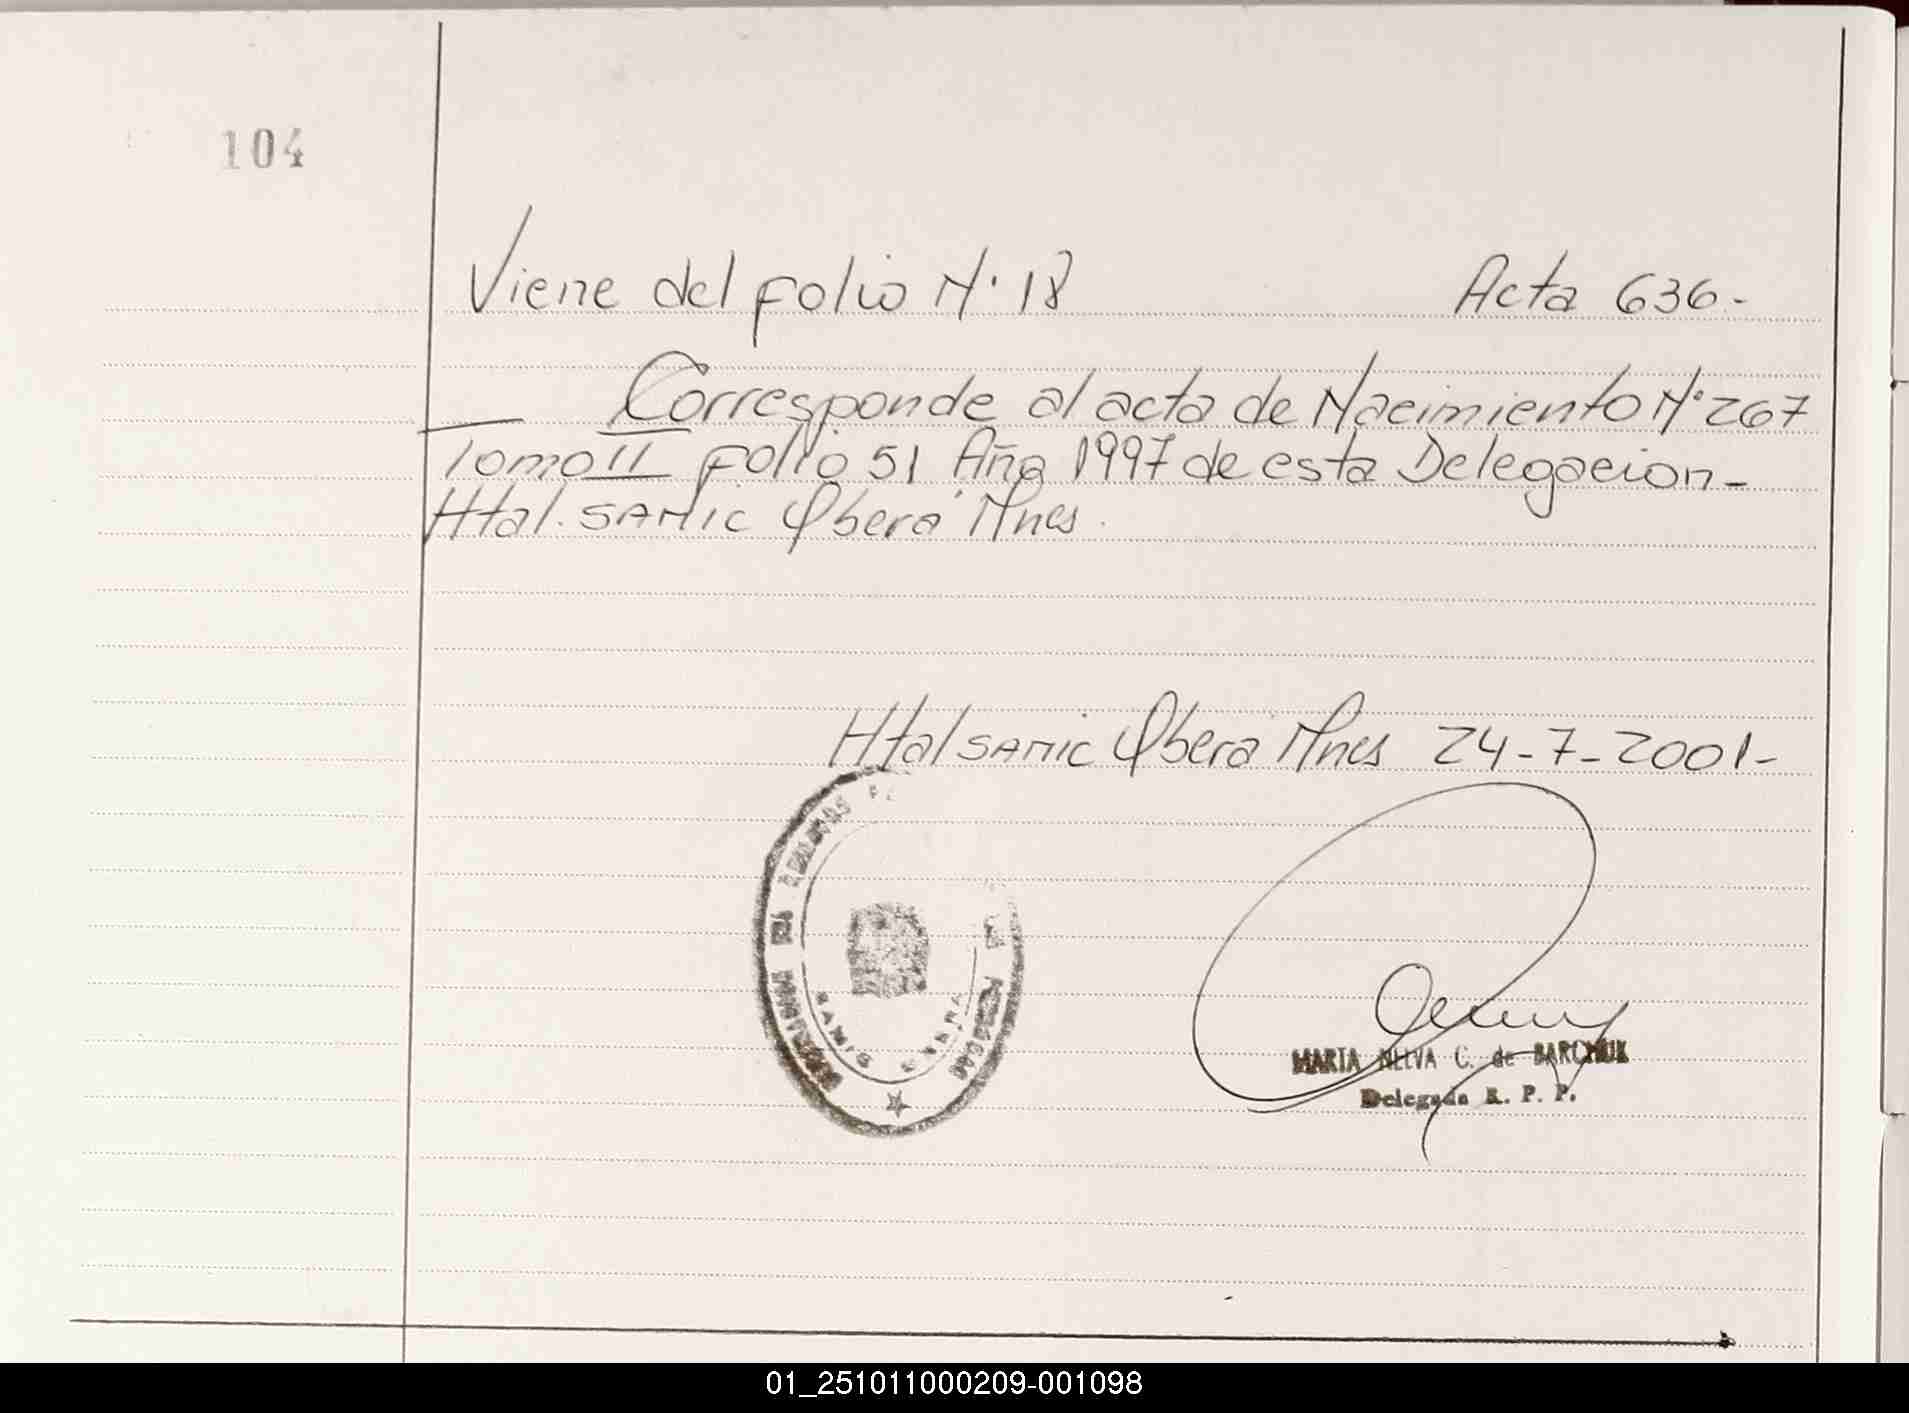 104
Viene del folio N° 18 Acta 636.-
Corresponde al acta de Nacimiento N° 267
Tomo II folio 51 Año 1997 de esta Delegacion-
Htal. SAMIC Oberá Mnes.
Htal SAMIC Oberá Mnes 24-7-2001-
SAMIC OBERA
MARTA NELVA C. de BARCHUK
Delegada R. P. P.
01_251011000209-001098